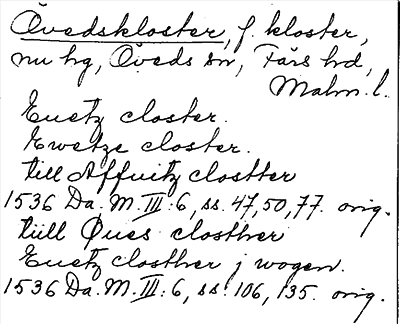 Övedskloster, f. kloster,
nu hg, Öveds sn, Färs hd,
Malm. l.
Euetz closter.
Ewetze closter.
till Affuitz clostter
1536 Da. M. III: 6, ss. 47, 50, 77. orig.
tiill Øues closther
Euetz closther j wogen.
1536 Da. M. III: 6, ss. 106, 135. orig.